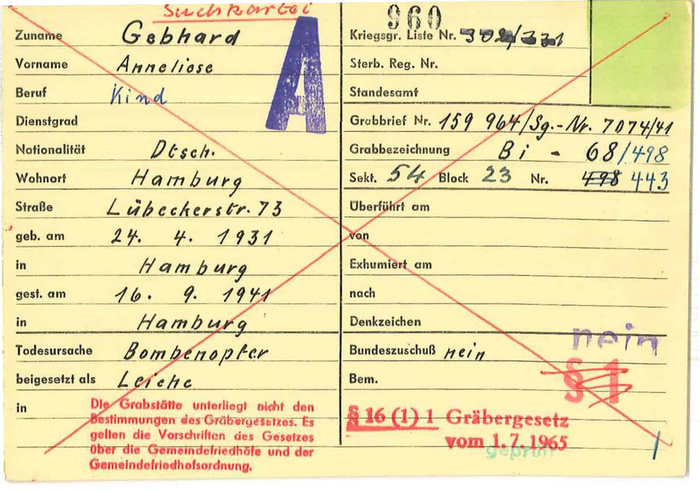 Suchkartei
Zuname Gebhard
Vorname Anneliese
Beruf Kind
Dienstgrad
Nationalität Dtsch.
Wohnort Hamburg
Straße Lübeckerstr. 73
geb. am 24. 4. 1931
in Hamburg
gest. am 16. 9. 1941
in Hamburg
Todesursache Bombenopfer
beigesetzt als Leiche
in
Die Grabstätte unterliegt nicht den
Bestimmungen des Gräbergesetzes. Es
gelten die Vorschriften des Gesetzes
über die Gemeindefriedhöfe und der
Gemeindefriedhofsordnung.
A
960
Kriegsgr. Liste Nr.
Sterb. Reg. Nr.
Standesamt
Grabbrief Nr. 159 964/Sg.-Nr. 7074/41
Grabbezeichnung Bi - 68/498
Sekt. 54 Block 23 Nr. 498 443
Überführt am
von
Exhumiert am
nach
Denkzeichen
nein
Bundeszuschuß nein
Bem. § 1
§ 16 (1) 1 Gräbergesetz
vom 1.7.1965
geprüft